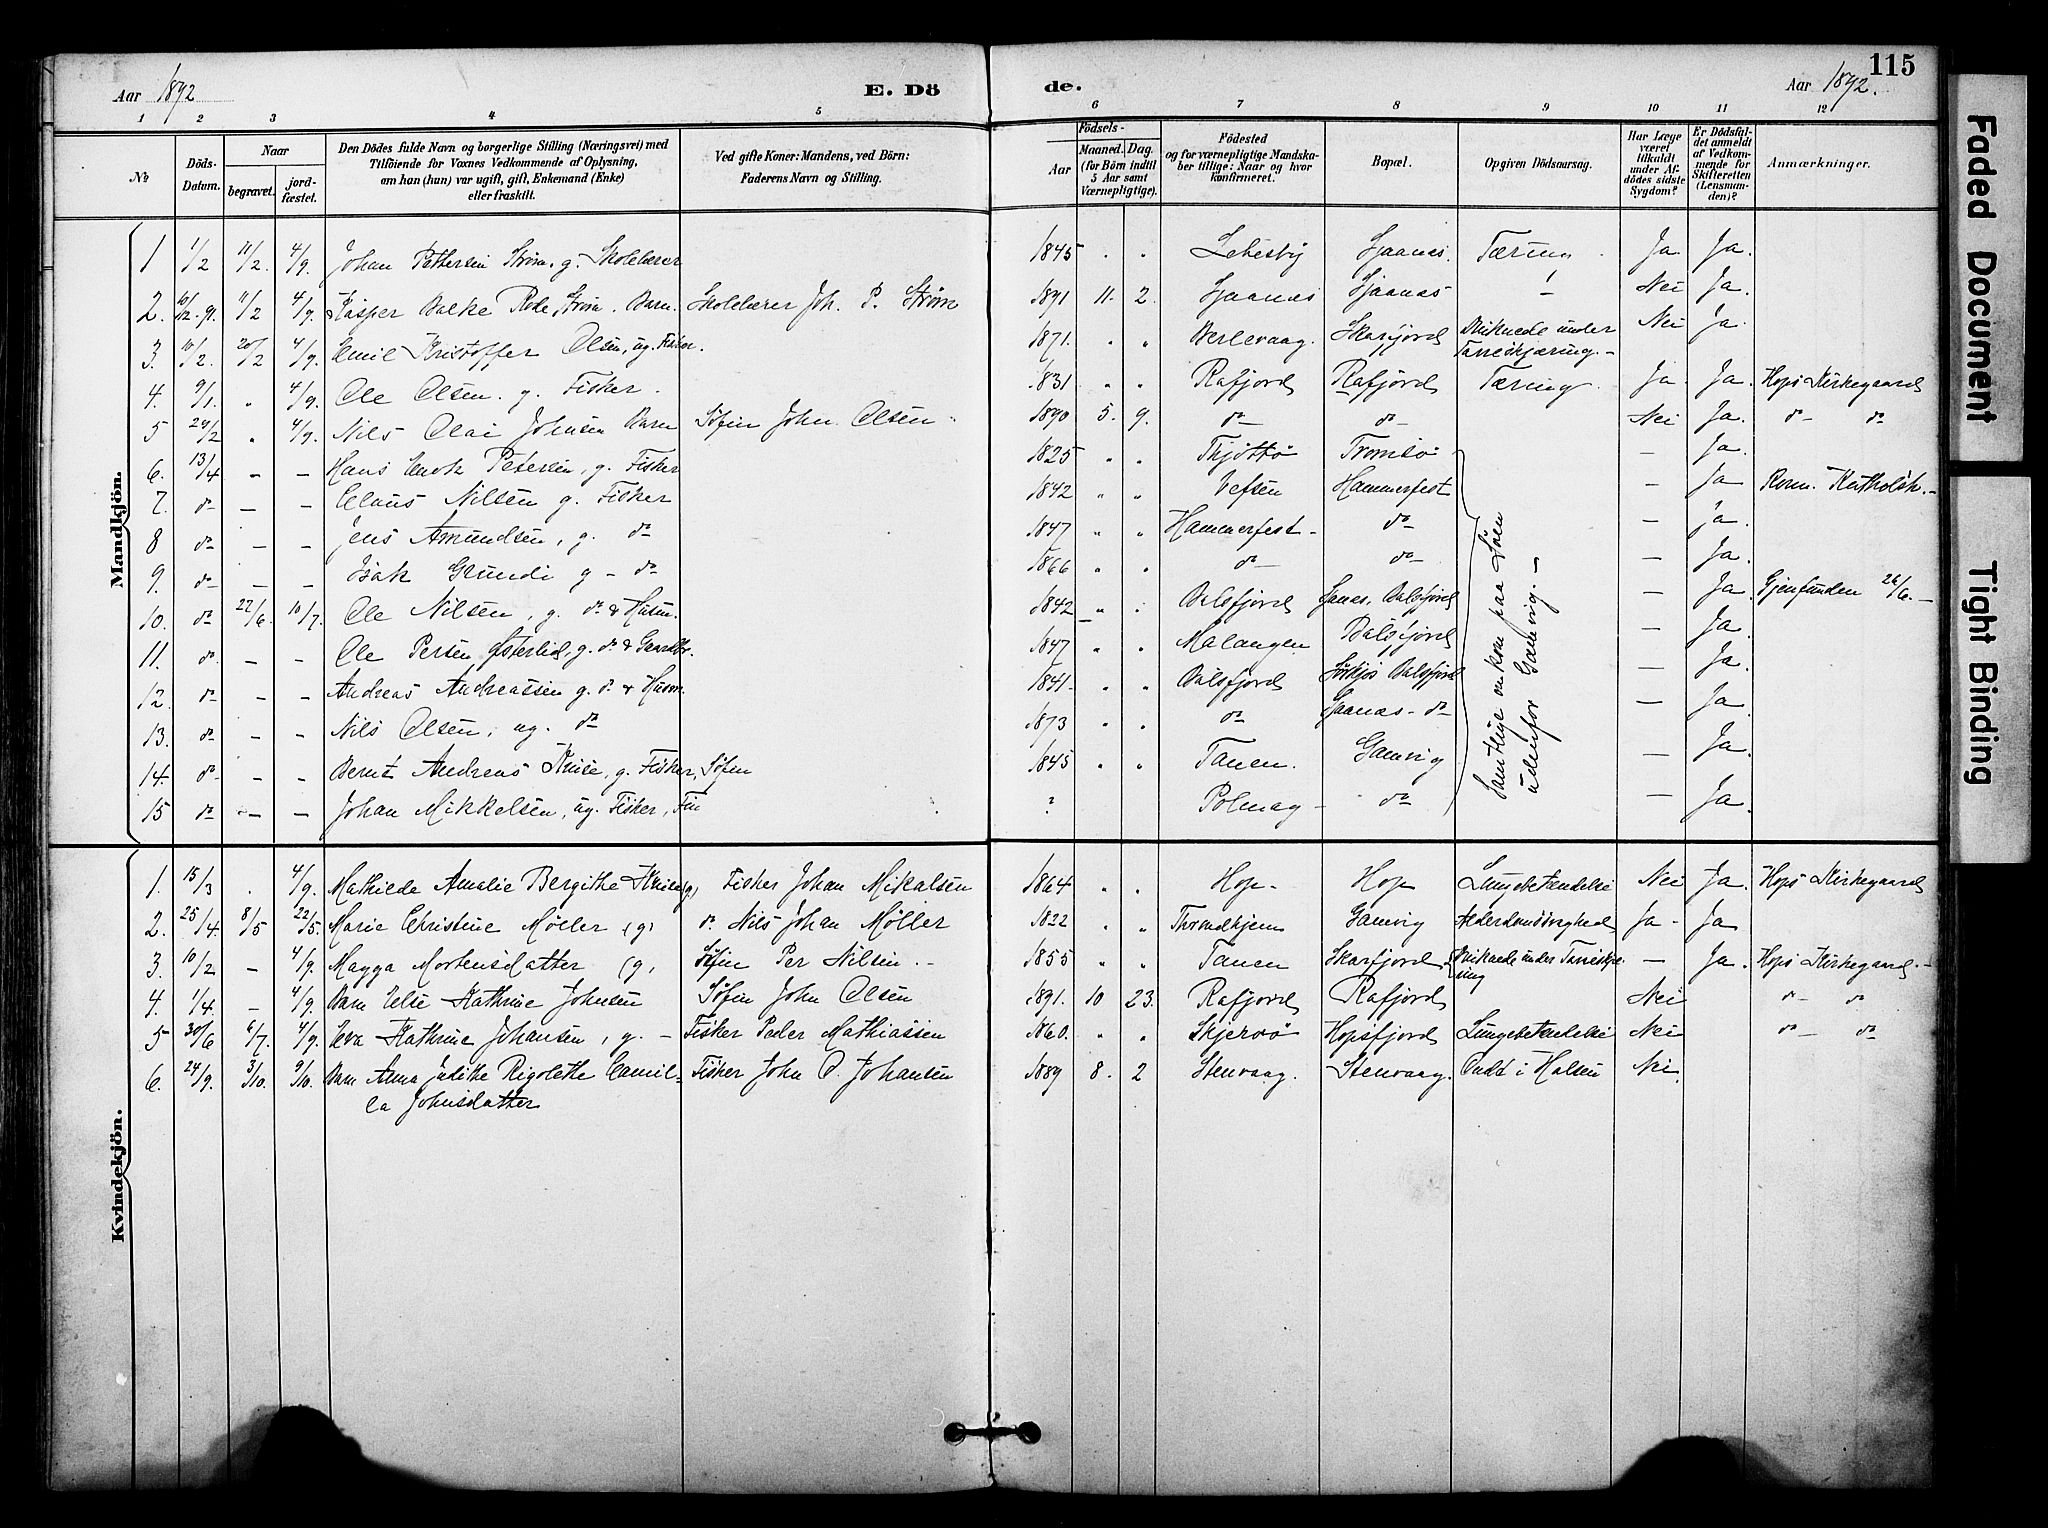 115
Aar 1892 E. Dö de. Aar 1892.
1 2 3 4 5 6 7 8 9 10 11 12
№
Döds-Datum.
Naar
begravet.
jord-fæstet.
Den Dödes fulde Navn og borgerlige Stilling (Næringsvei) med
Tilföiende for Voxnes Vedkommende af Oplysning,
om han (hun) var ugift, gift, Enkemand (Enke)
eller fraskilt.
Ved gifte Koner: Mandens, ved Börn:
Faderens Navn og Stilling.
Födsels-
Aar
Maaned. Dag.
(for Börn indtil
5 Aar samt
Værnepligtige).
Födested
og for værnepligtige Mandska-
ber tillige: Naar og hvor
konfirmeret.
Bopæl.
Opgiven Dödsaarsag.
Har Læge
været
tilkaldt
under Af-
dödes sidste
Sygdom?
Er Dödsfal-
det anmeldt
af Vedkom-
mende for
Skifteretten
(Lensman-
den)?
Anmærkninger.
Mandkjön.
1 1/2 11/2. 4/9. Johan Pettersen Strøm. g. Skolelærer 1845 " " Lebesby Sjaanes. Tæring. Ja Ja.
2. 10/12. 91. 11/2 4/9. Kasper Balke Rode Strøm. Barn. Skolelærer Joh. P. Strøm 1891 11. 2. Sjaanes Sjaanes – Nei Ja.
3. 10/2. 20/2 4/9. Emil Kristoffer Olsen, ug. Fisker. 1871. " " Berlevaag. Skarfjord Druknede under Tareskjæring. – Nei Ja.
4. 9/1. " 4/9. Ole Olsen. g. Fisker. 1831 " " Rafjord Rafjord Tæring. Ja. Ja. Hops Kirkegaard
5 24/2 " 4/9. Nils Olai Johnsen Barn Søfin John Olsen 1890 5. 9. do do Nei Ja. do do
6. 13/4 – – Hans Enok Petersen, g. Fisker 1825 " " Thjøttø Tromsø – Ja.
7. do – – Claus Nilsen g. Fisker 1842 " " Vefsen Hammerfest – Ja Rom. Katholik. –
8 do – – Jens Amundsen, g. do 1847 " " Hammerfest – do – ja.
9. do – – Isak Grundi g – do 1866 " " do do – Ja.
10. do 22/6. 10/7. Ole Nilsen, g. do & Husm. 1842 " " Balsfjord Balsfjord – Ja. Gjenfunden 26/6. –
11. do – – Ole Persen Østerlid, g. do & Gaardbr. 1847 " " Malangen Balsfjord – Ja.
12. do – – Andreas Andreassen g. do & Husm. 1841. " " Balsfjord Balsfjord – Ja.
13. do – – Nils Olsen, ug. do 1873 " " do do – Ja.
14. do – – Bernt Andreas Knise, g. Fisker, Søfin 1845 " " Tanen. Gamvig – Ja.
15 do – – Johan Mikkelsen, ug. Fisker, Fin ? Polmag – do – Ja.
Samtlige omkom paa Søen
udenfor Gamvig. –
Kvindekjön.
1. 15/3 . 4/9. Mathilde Amalie Bergithe Knise (g) Fisker Johan Mikalsen 1864 " " Hop. Hop Lungebetændelse Nei Ja. Hops Kirkegaard
2. 25/4. 8/5 22/5. Marie Christine Møller (g) do Nils Johan Møller 1822 " " Throndhjem Gamvig Alderdomssvaghed Ja – Ja
3. 10/2 – 4/9. Magga Mortensdatter (g, Søfin Per Nilsen. – 1855 " " Tanen Skarfjord Druknede under Tareskjæ-ring – Ja. Hops Kirkegaard. –
4. 1/4. – 4/9. Barn Else Kathrine Johnsen Søfin John Olsen 1891. 10 23. Rafjord Rafjord Nei do – do
5 30/6 6/7. 4/9. Eva Kathrine Johansen, g. – Fisker Peder Mathiassen 1860. " " Skjervø Hopsfjord Lungebetændelse Nei do – do
6. 24/9. 3/10. 9/10. Barn Anna Judithe Rigolethe Camil-
la Johnsdatter Fisker John O. Johansen 1889 8. 2 Stenvaag. Stenvaag. Ondt i Halsen Nei.
Faded Document
Tight Binding